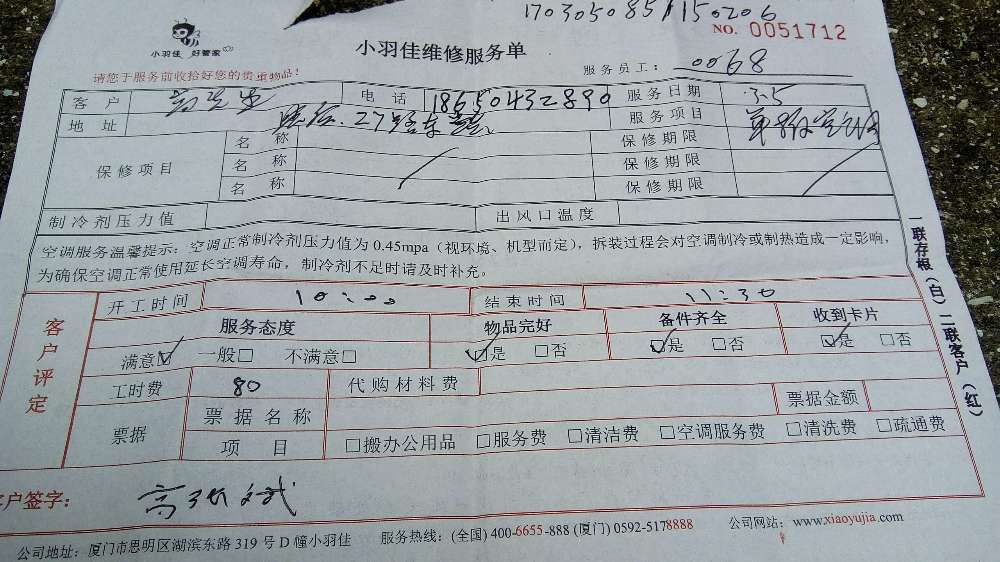 170305085/150206
NO. 0051712
小羽佳 好管家
小羽佳维修服务单
请您于服务前收拾好您的贵重物品!
服务员工: 0068
客户 高先生 电话 18650432890 服务日期 3.5
地址 27 服务项目
保修项目 名称 保修期限
名称 保修期限
名称 保修期限
制冷剂压力值 出风口温度
空调服务温馨提示:空调正常制冷剂压力值为0.45mpa(视环境、机型而定),拆装过程会对空调制冷或制热造成一定影响,
为确保空调正常使用延长空调寿命,制冷剂不足时请及时补充。
一联存根(白)二联客户(红)
客户评定
开工时间 10:00 结束时间 11:30
服务态度 物品完好 备件齐全 收到卡片
满意☑ 一般□ 不满意□ ☑是 □否 ☑是 □否 ☑是 □否
工时费 80 代购材料费
票据 票据名称 票据金额
项目 □搬办公用品 □服务费 □清洁费 □空调服务费 □清洗费 □疏通费
客户签字: 高
公司地址:厦门市思明区湖滨东路319号D幢小羽佳 服务热线:(全国)400-6655-888(厦门)0592-5178888 公司网站:www.xiaoyujia.com